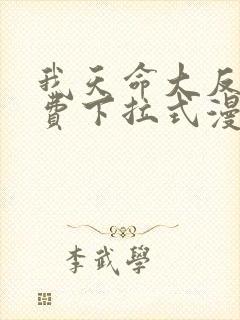 我天命大反
費下拉式漫
李武學